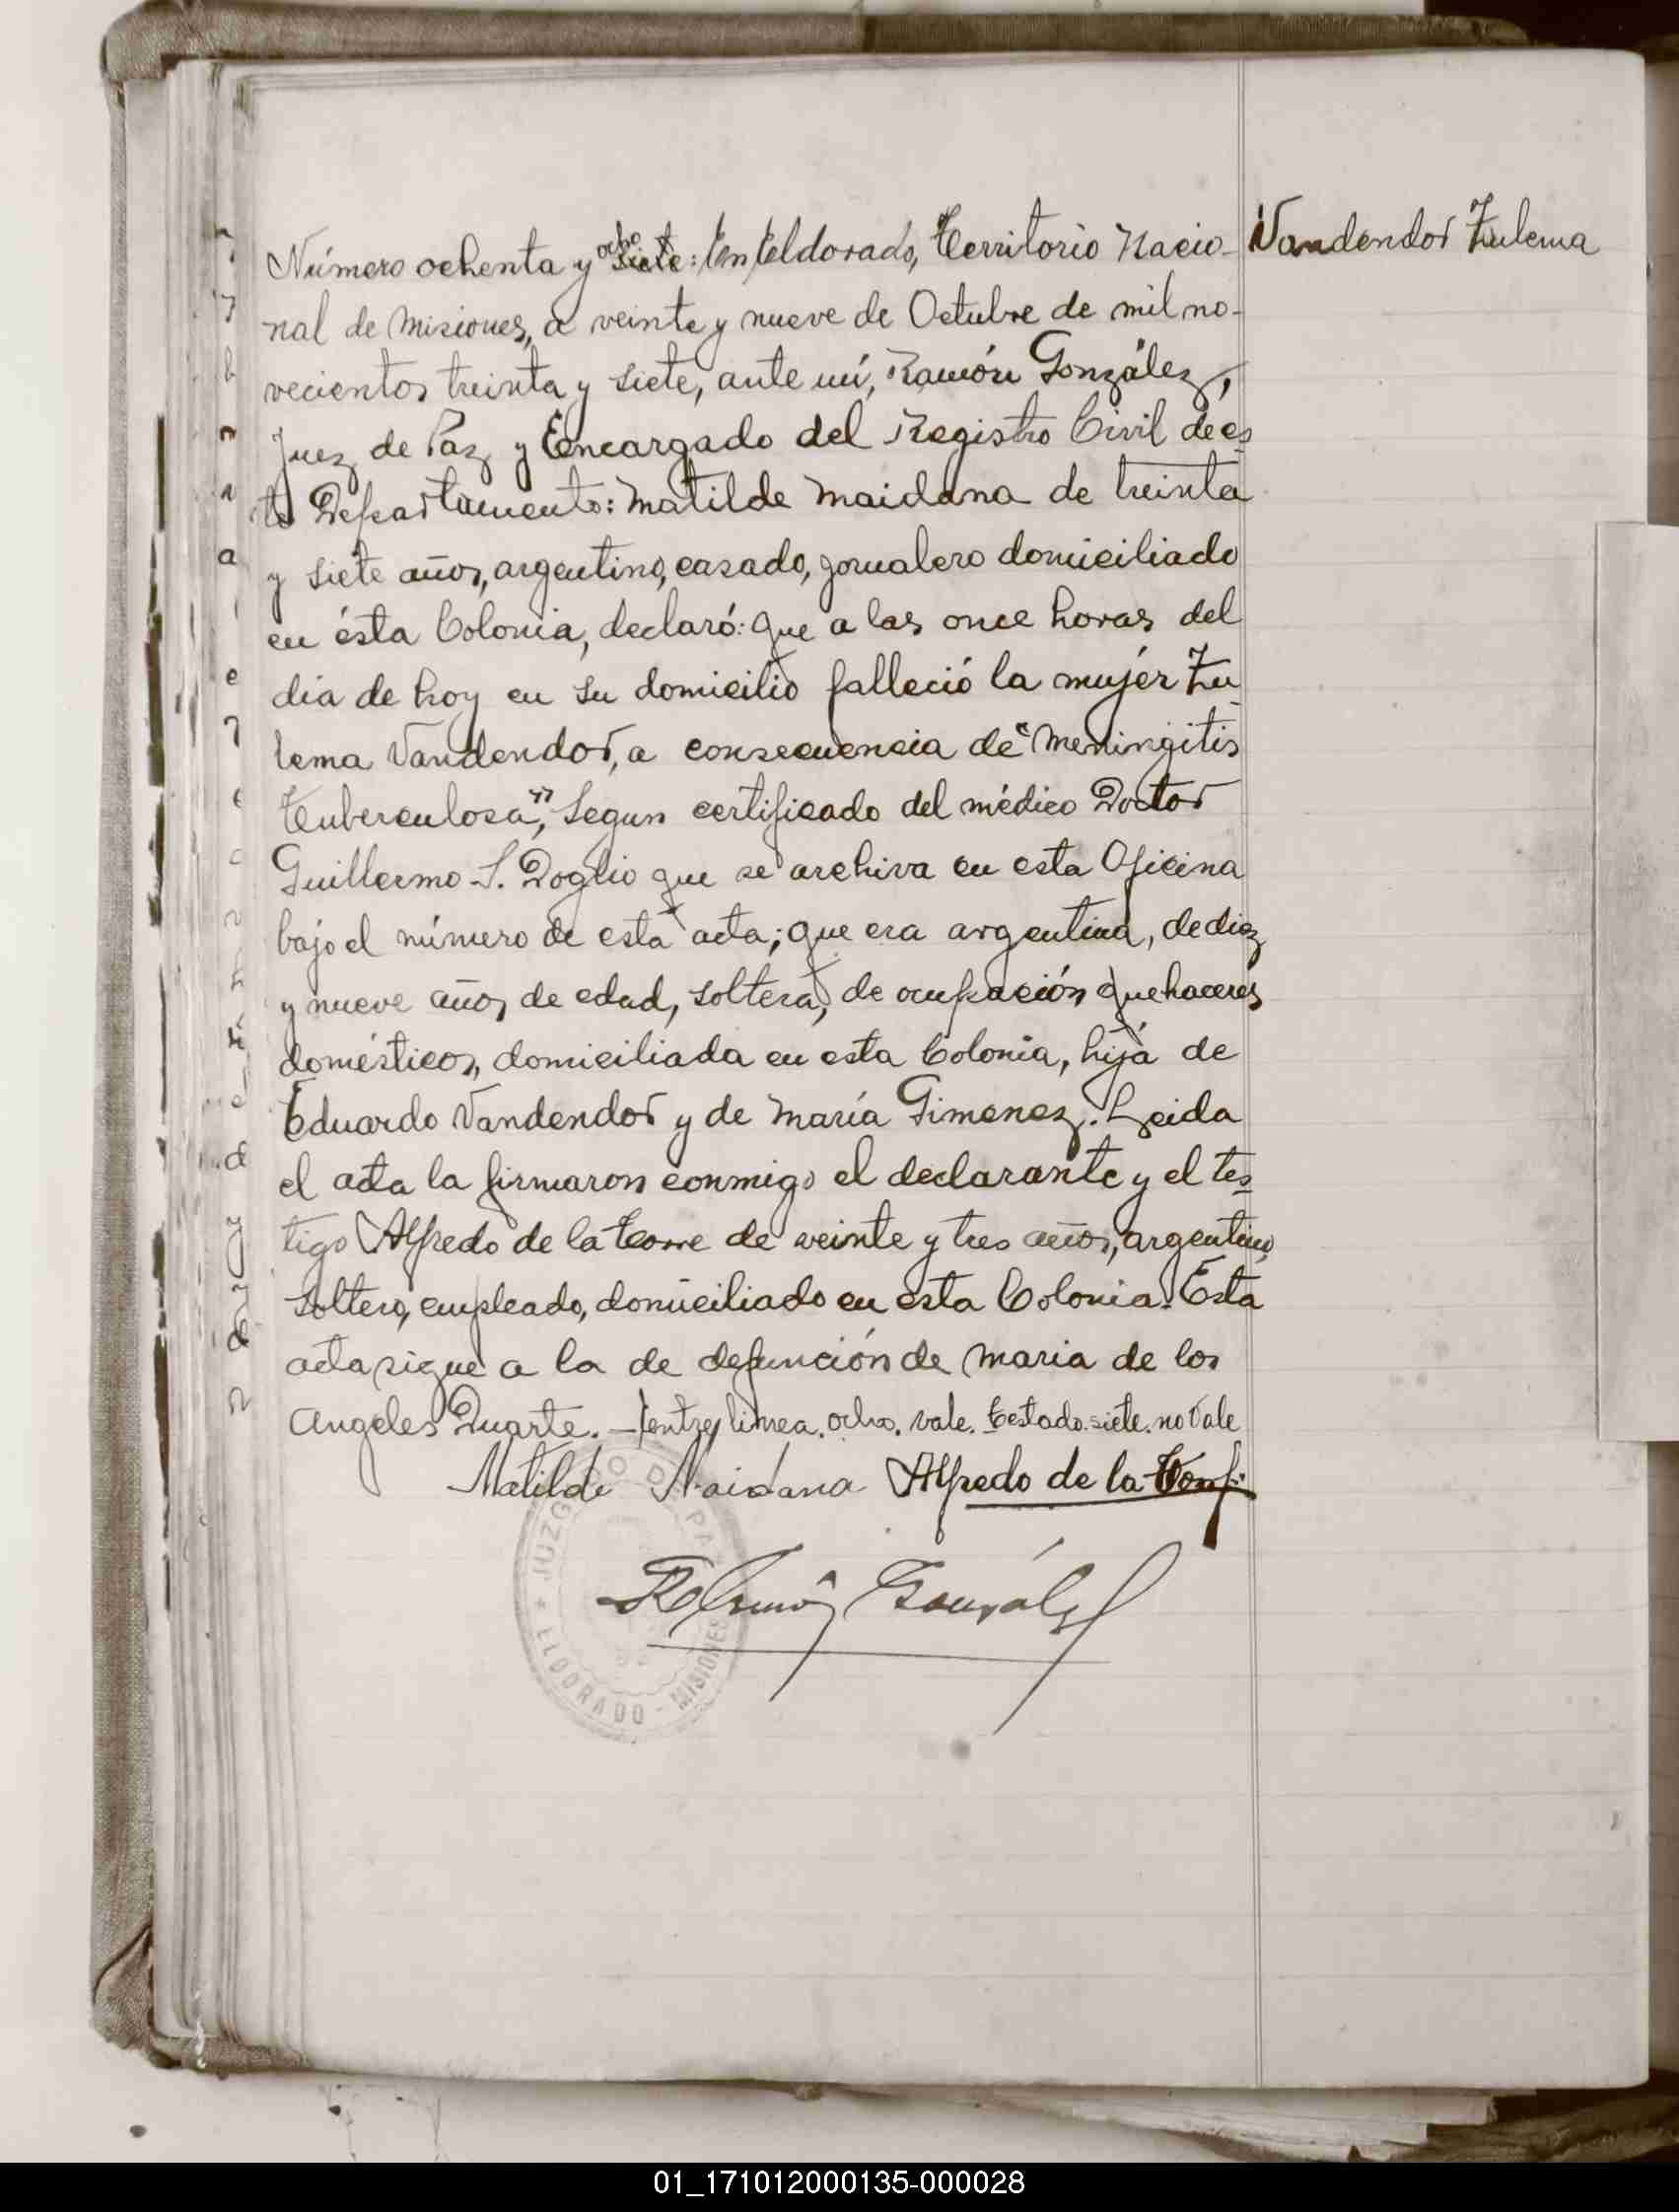 Número ochenta y ocho siete: En Eldorado, Territorio Nacio- Vandendor Zulema
nal de Misiones, a veinte y nueve de Octubre de mil no-
vecientos treinta y siete, ante mí, Ramón González,
Juez de Paz y Encargado del Registro Civil de es-
te Departamento: Matilde Maidana de treinta
y siete años, argentino, casado, jornalero domiciliado
en ésta Colonia, declaró: Que a las once horas del
día de hoy en su domicilio falleció la mujér Zu-
lema Vandendor, a consecuencia de "Meningitis
Tuberculosa", segun certificado del médico Doctor
Guillermo S. Doglio que se archiva en esta Oficina
bajo el número de esta acta; que era argentina, de diez
y nueve años de edad, soltera, de ocupación quehaceres
domésticos, domiciliada en esta Colonia, hija de
Eduardo Vandendor y de María Gimenez. Leida
el acta la firmaron conmigo el declarante y el tes-
tigo Alfredo de la Torre de veinte y tres años, argentino,
soltero, empleado, domiciliado en esta Colonia. Esta
acta sigue a la de defunción de Maria de los
Angeles Duarte. - Entre linea. ocho. vale. Testado. siete. no vale
Matilde Maidana Alfredo de la Torre
Ramón González
JUZGADO DE PAZ
ELDORADO - MISIONES
01_171012000135-000028